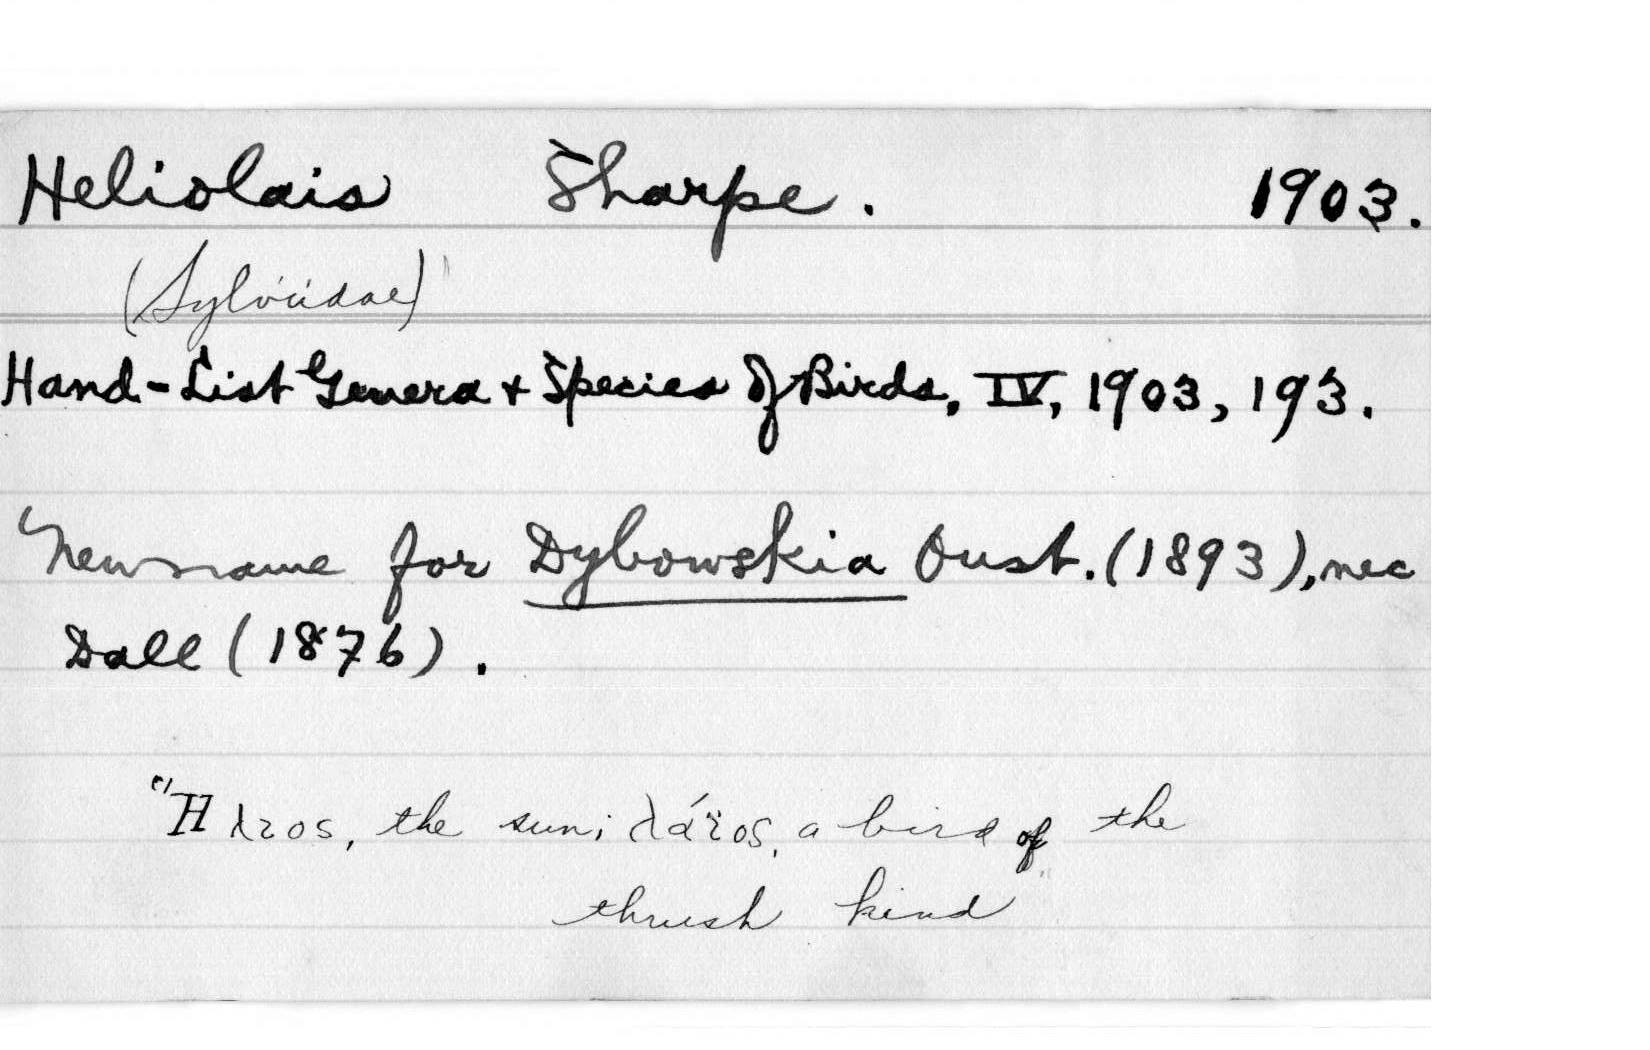 Heliolais Sharpe. 1903.
(Sylviidae)
Hand-List Genera + Species of Birds, IV, 1903, 193.
New name for Dybowskia Oust. (1893), nec
Dall (1876).
"Ηλιος, the sun; λάϊος, a bird of the
thrush kind"